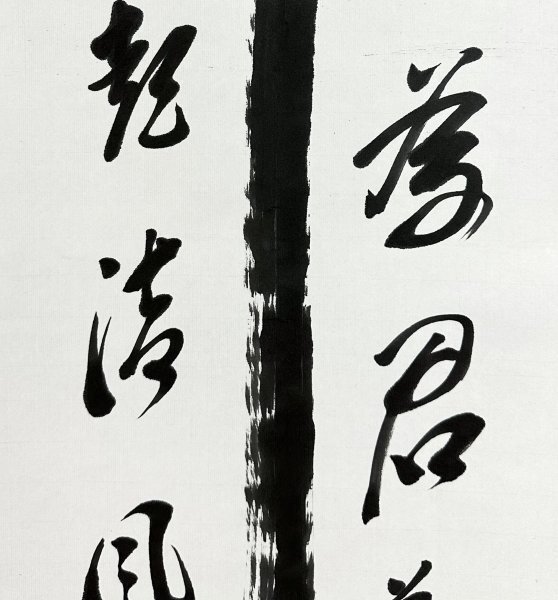 為君
起清風